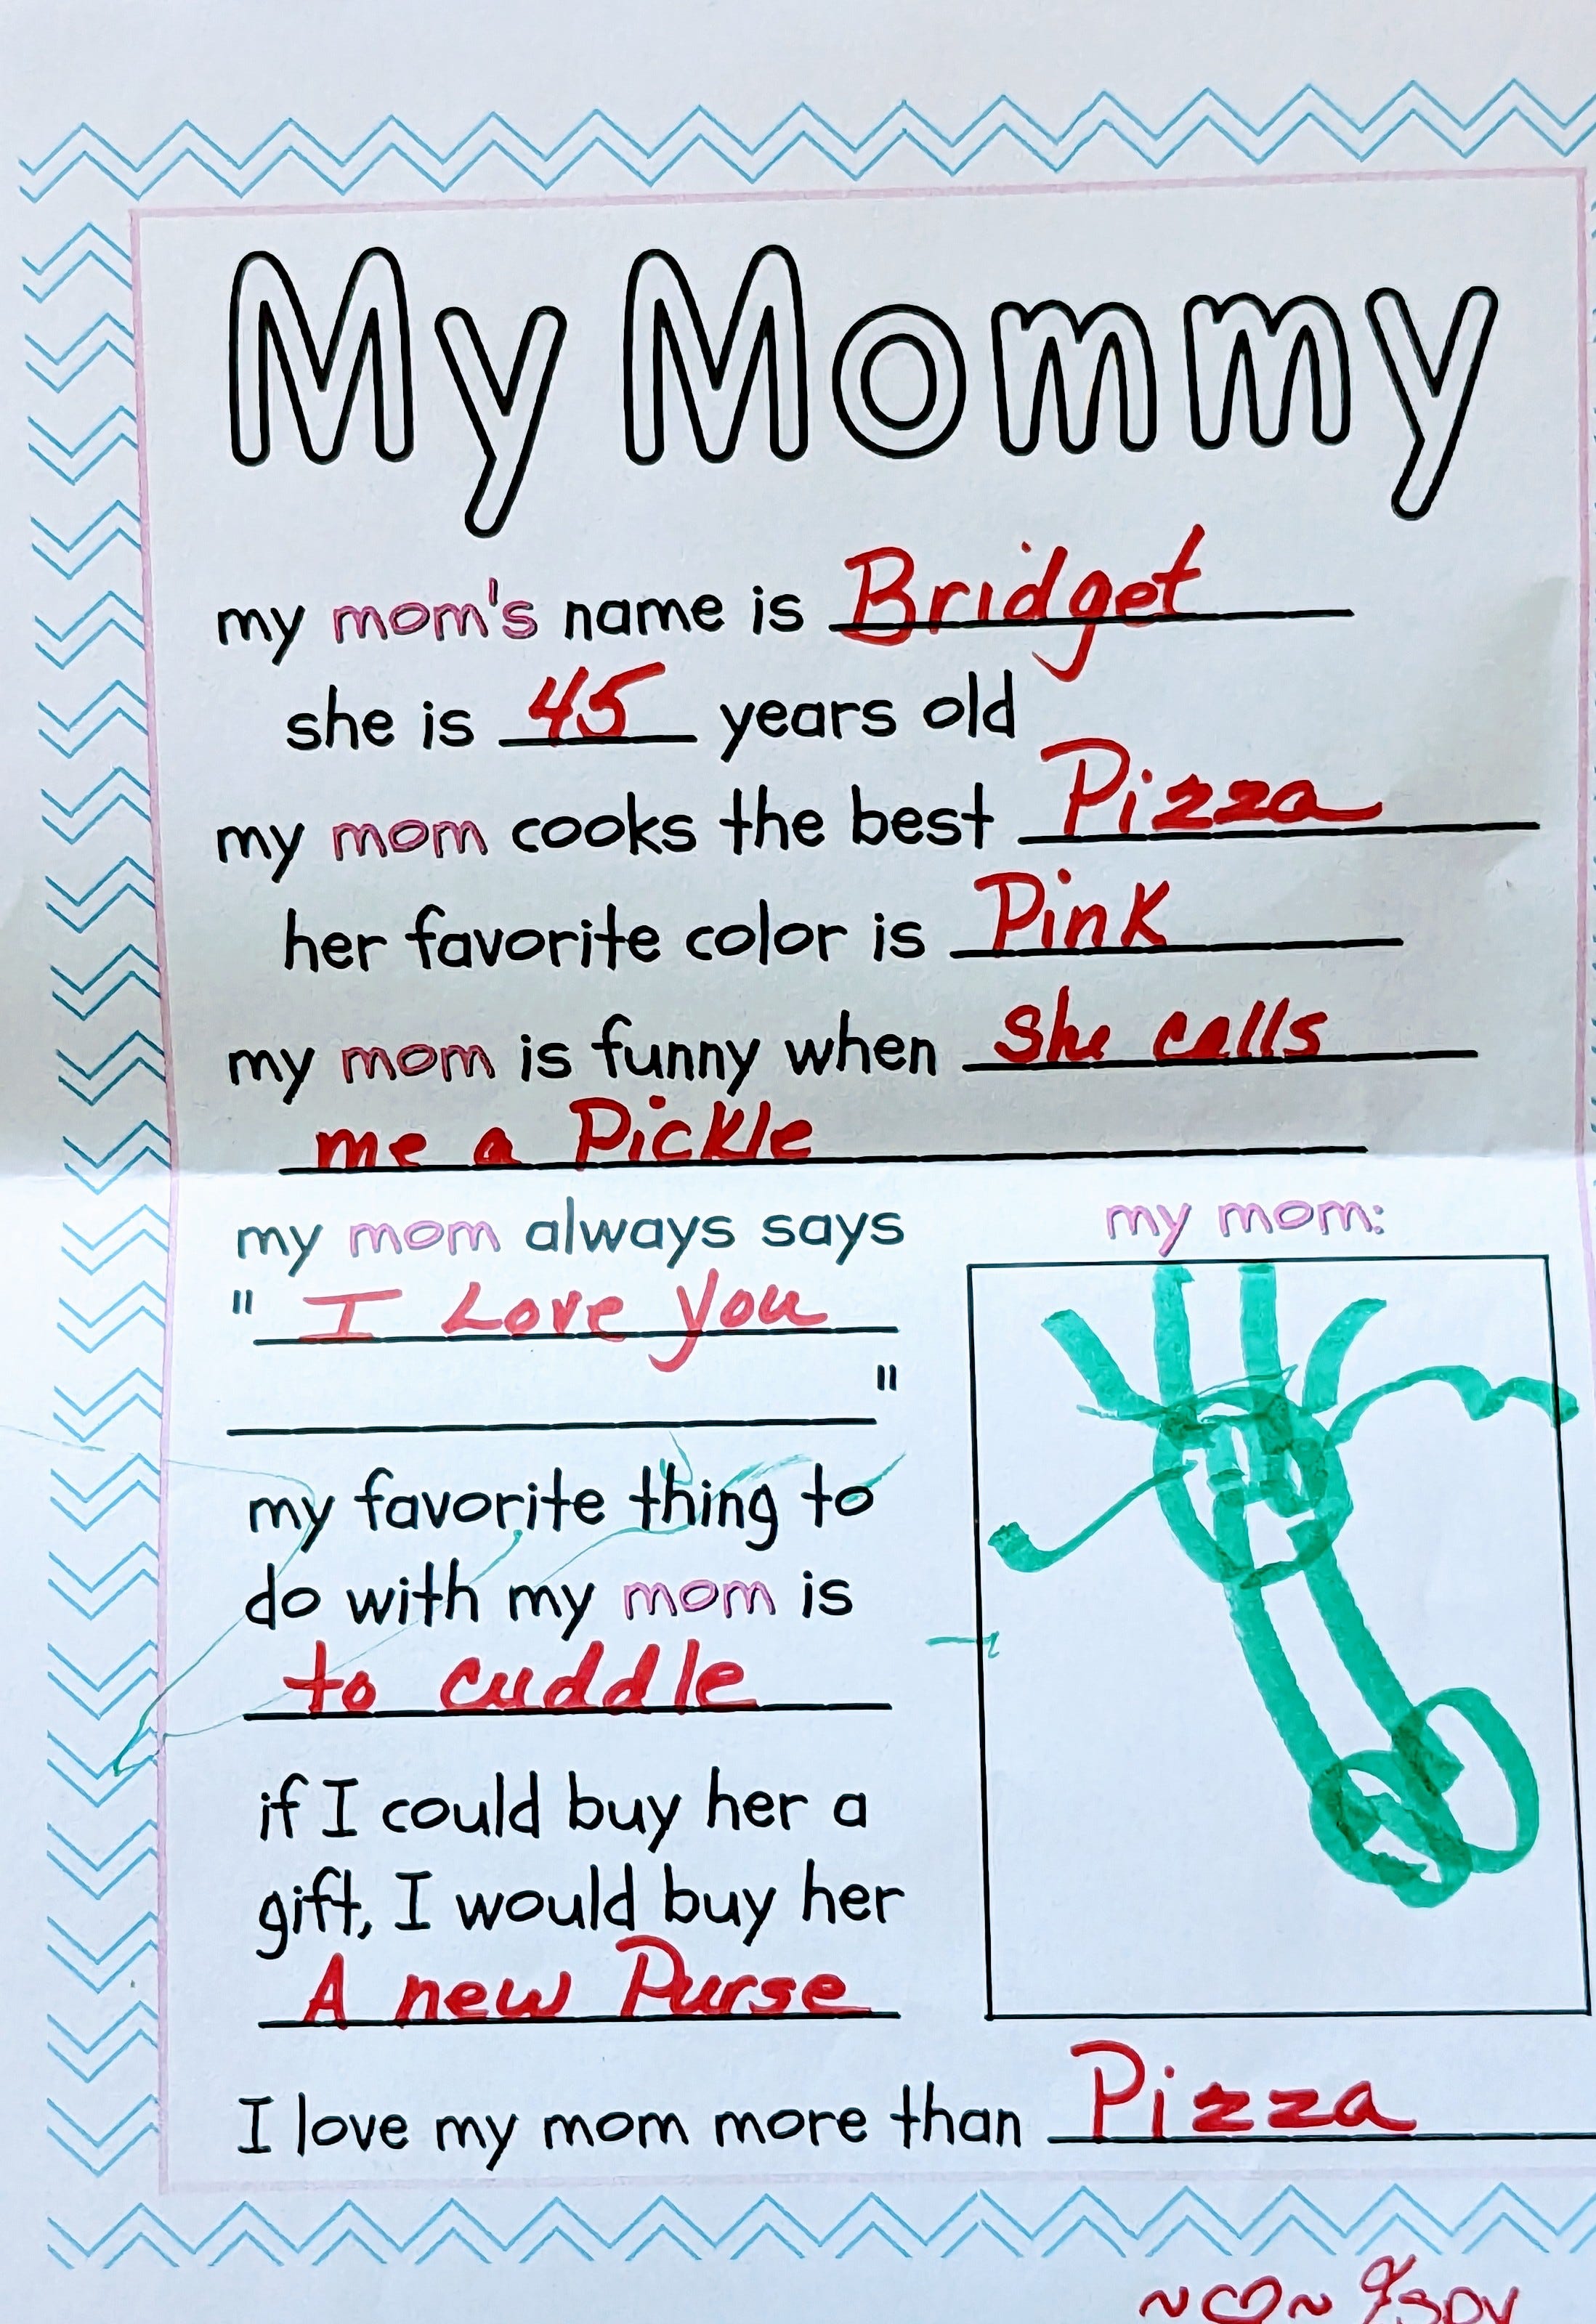 My Mommy
my mom's name is Bridget
she is 45 years old
my mom cooks the best Pizza
her favorite color is Pink
my mom is funny when she calls
me a Pickle
my mom always says
" I Love you
"
my mom:
my favorite thing to
do with my mom is
to cuddle
if I could buy her a
gift, I would buy her
A new Purse
I love my mom more than Pizza